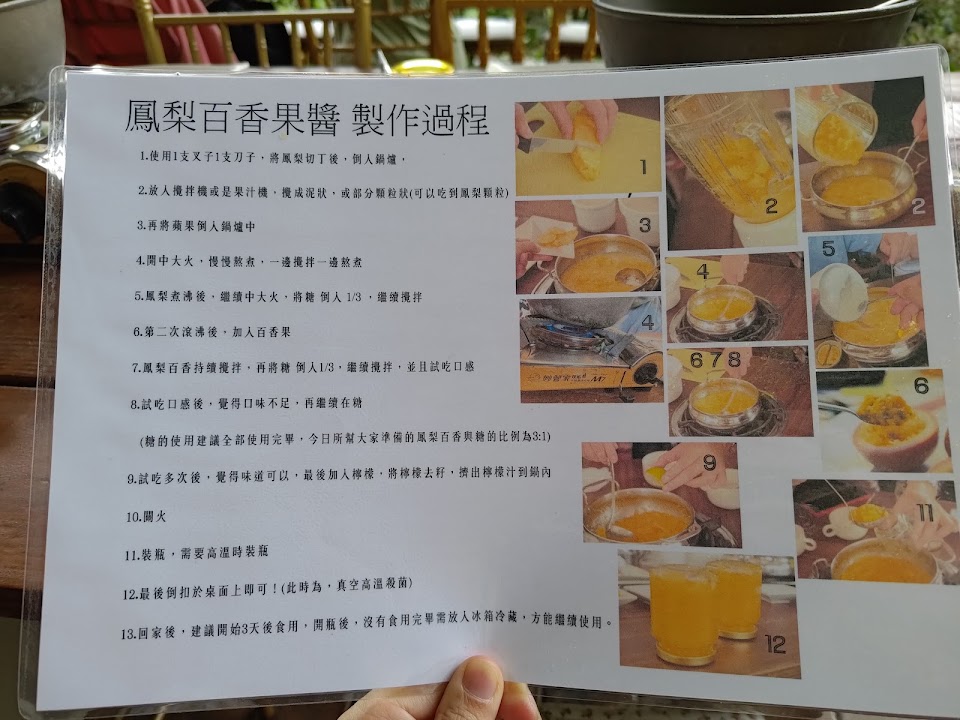 鳳梨百香果醬 製作過程
1.使用1支叉子1支刀子，將鳳梨切丁後，倒入鍋爐，
2.放入攪拌機或是果汁機，攪成泥狀，或部分顆粒狀(可以吃到鳳梨顆粒)
3.再將蘋果倒入鍋爐中
4.開中大火，慢慢熬煮，一邊攪拌一邊熬煮
5.鳳梨煮沸後，繼續中大火，將糖 倒入 1/3 ，繼續攪拌
6.第二次滾沸後，加入百香果
7.鳳梨百香持續攪拌，再將糖 倒入1/3，繼續攪拌，並且試吃口感
8.試吃口感後，覺得口味不足，再繼續在糖
(糖的使用建議全部使用完畢，今日所幫大家準備的鳳梨百香與糖的比例為3:1)
9.試吃多次後，覺得味道可以，最後加入檸檬，將檸檬去籽，擠出檸檬汁到鍋內
10.關火
11.裝瓶，需要高溫時裝瓶
12.最後倒扣於桌面上即可！(此時為，真空高溫殺菌)
13.回家後，建議開始3天後食用，開瓶後，沒有食用完畢需放入冰箱冷藏，方能繼續使用。
1
2
2
3
4
5
4
6 7 8
6
9
11
12